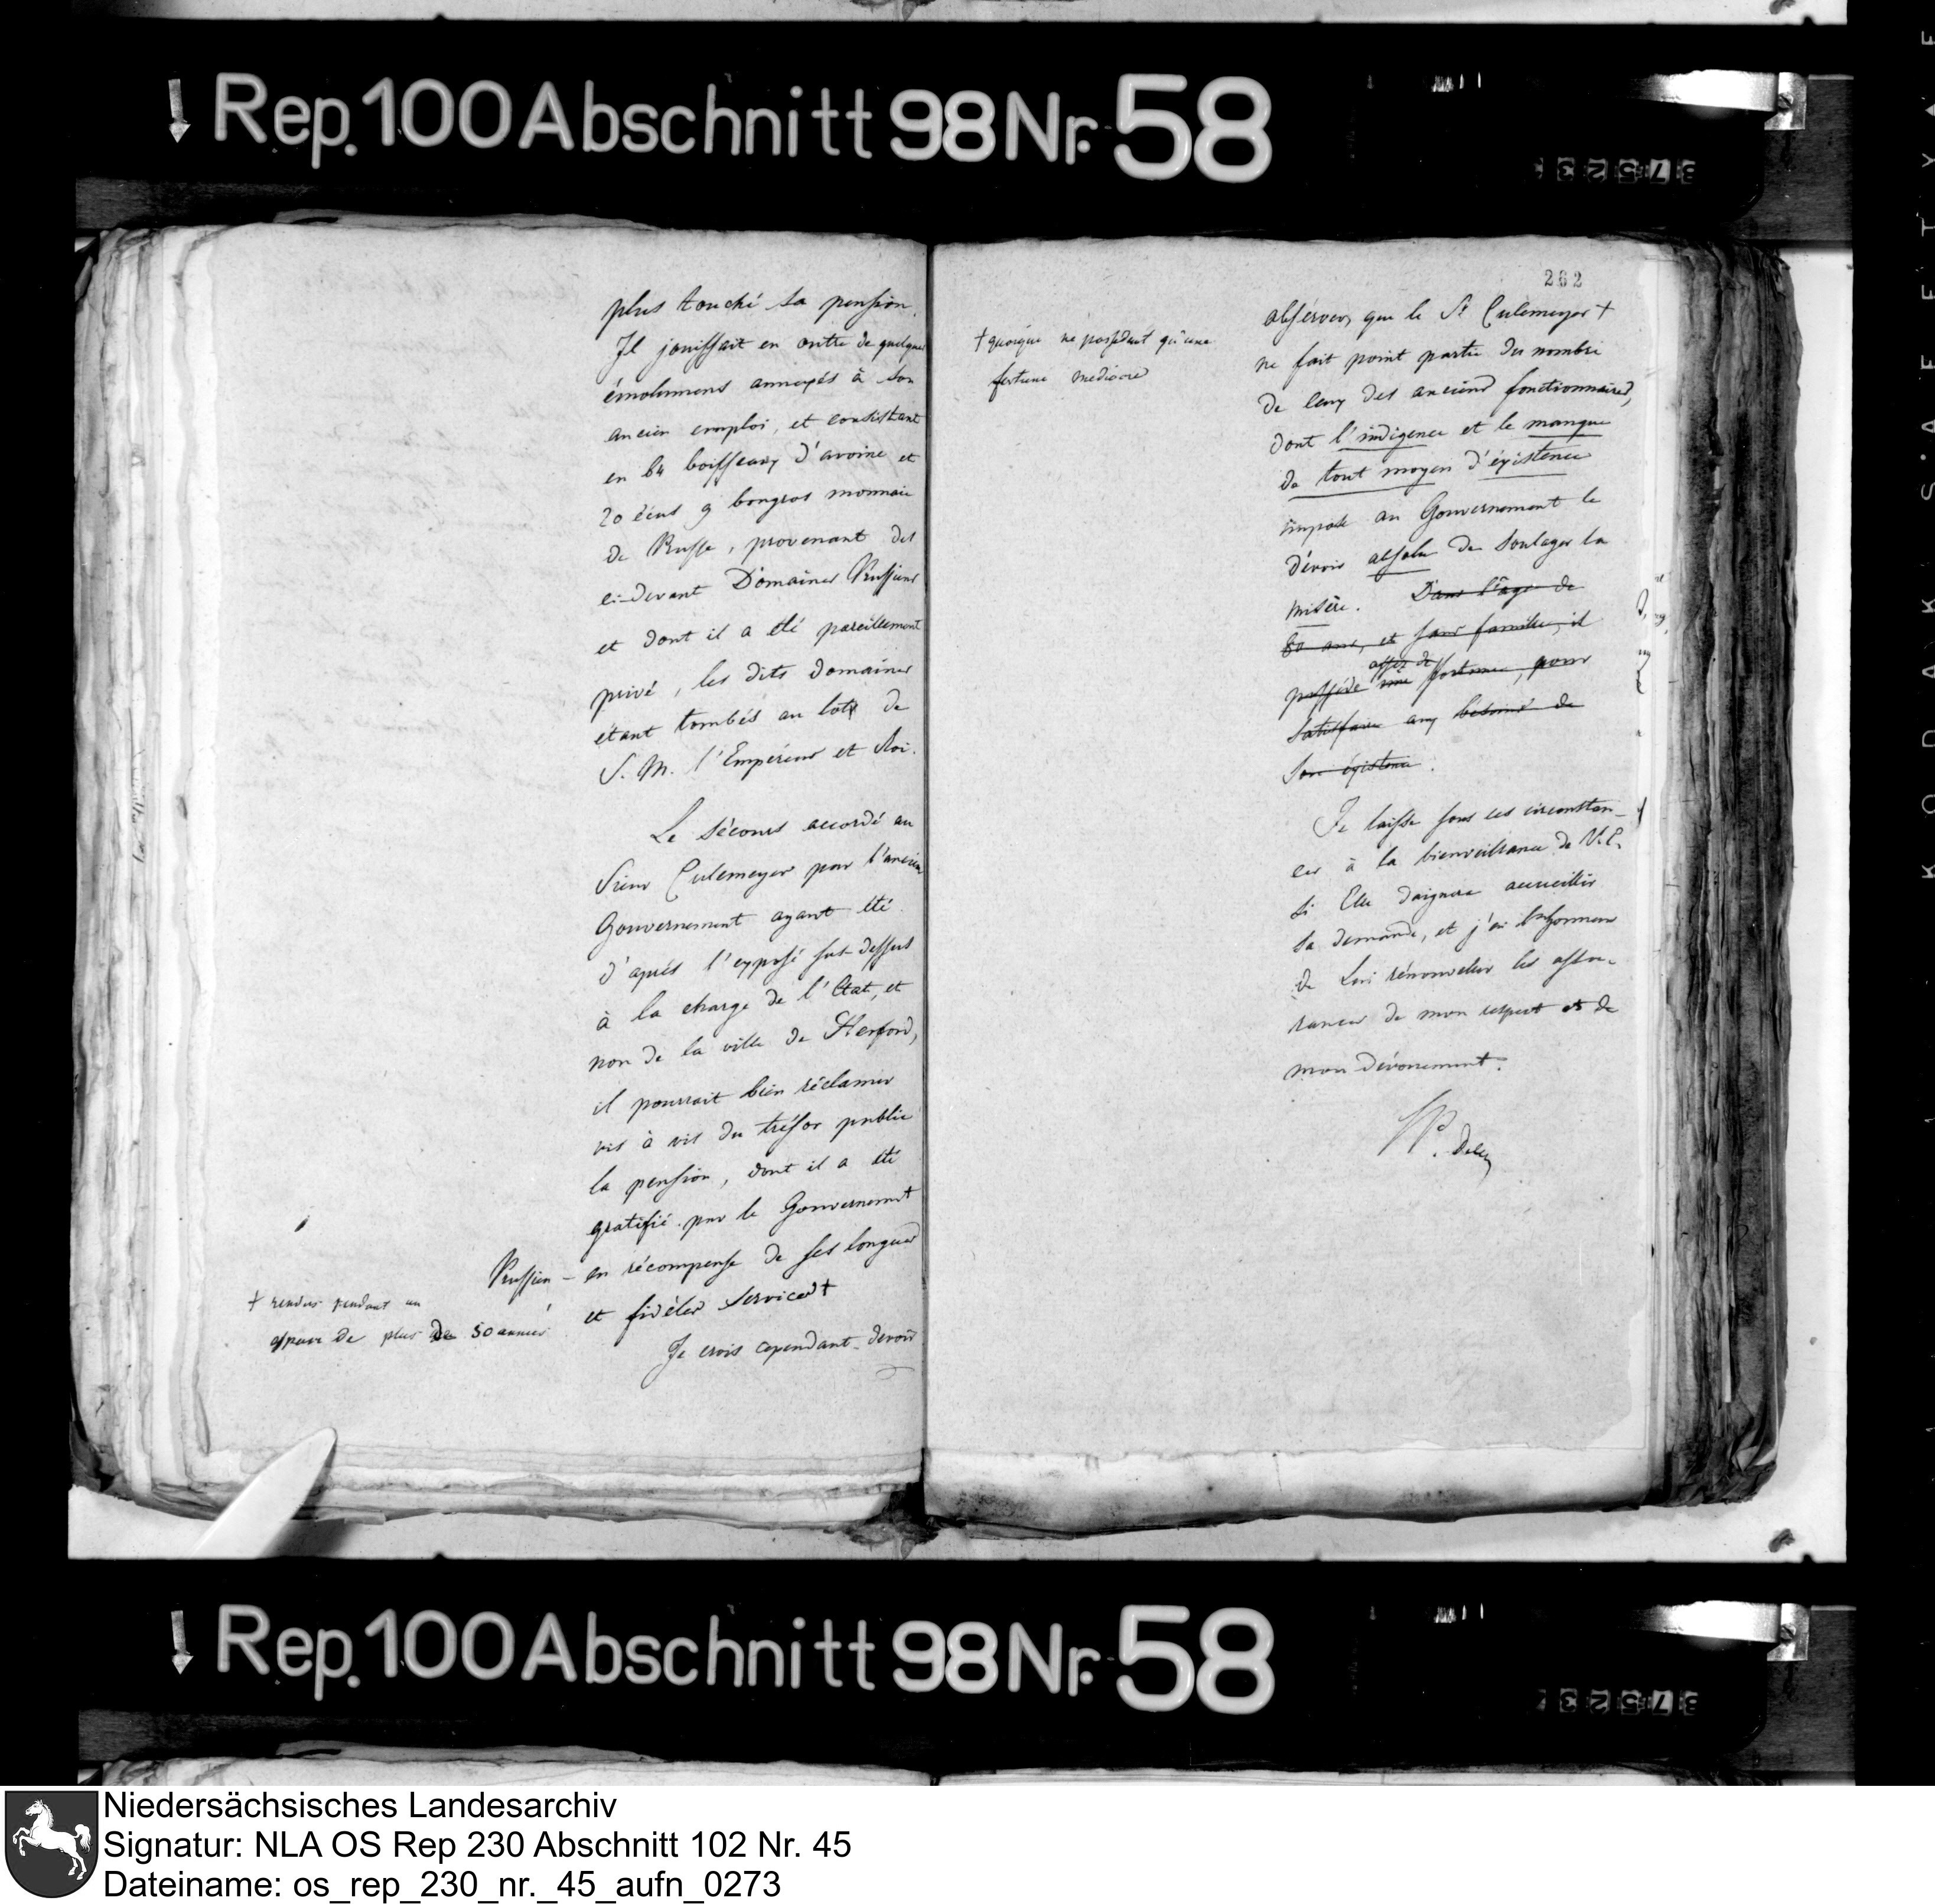 Rep. 100 Abschnitt 98 Nr. 58
plus touché sa pension.
Il jouissait en outre de quelques
émolumens annexés à son
ancien emploi, et consistant
en 64 boisseaux d'avoine et
20 écus 9 bongros monnaie
de Prusse, provenant des
ci-devant Domaines Prussiens
et dont il a été pareillement
privé, les dits domaines
étant tombés au lot de
S. M. l'Empereur et Roi.
Le sécours accordé au
Sieur Culemeyer par l'ancien
Gouvernement ayant été
d'après l'exposé sus-dessus
à la charge de l'Etat, et
non de la ville de Herford,
il pourrait bien réclamer
vis à vis du trésor public
la pension, dont il a été
gratifié par le Gouvernemt
Prussien – en récompense de ses longues
et fidèles services +
+ rendus pendant un
espace de plus de 50 années
Je crois cependant devoir
262
observer, que le Sr Culemeyer +
+ quoique ne possédant qu'une
fortune mediocre
ne fait point partie du nombre
de ceux des anciens fonctionnaires,
dont l'indigence et le manque
de tout moyen d'éxistence
impose au Gouvernement le
dévoir absolu de soulager la
misère. Dans l'âge de
60 ans, et sans famille, il
possède assez de fortune, pour
satisfaire aux besoins de
son éxistence.
Je laisse sous ces circonstan-
ces à la bienveillance de V. E.
si Elle daignera accueillir
sa demande, et j'ai l'honneur
de Lui rénouveler les assu-
rances de mon respect et de
mon dévouement.
Rep. 100 Abschnitt 98 Nr. 58
Niedersächsisches Landesarchiv
Signatur: NLA OS Rep 230 Abschnitt 102 Nr. 45
Dateiname: os_rep_230_nr._45_aufn_0273